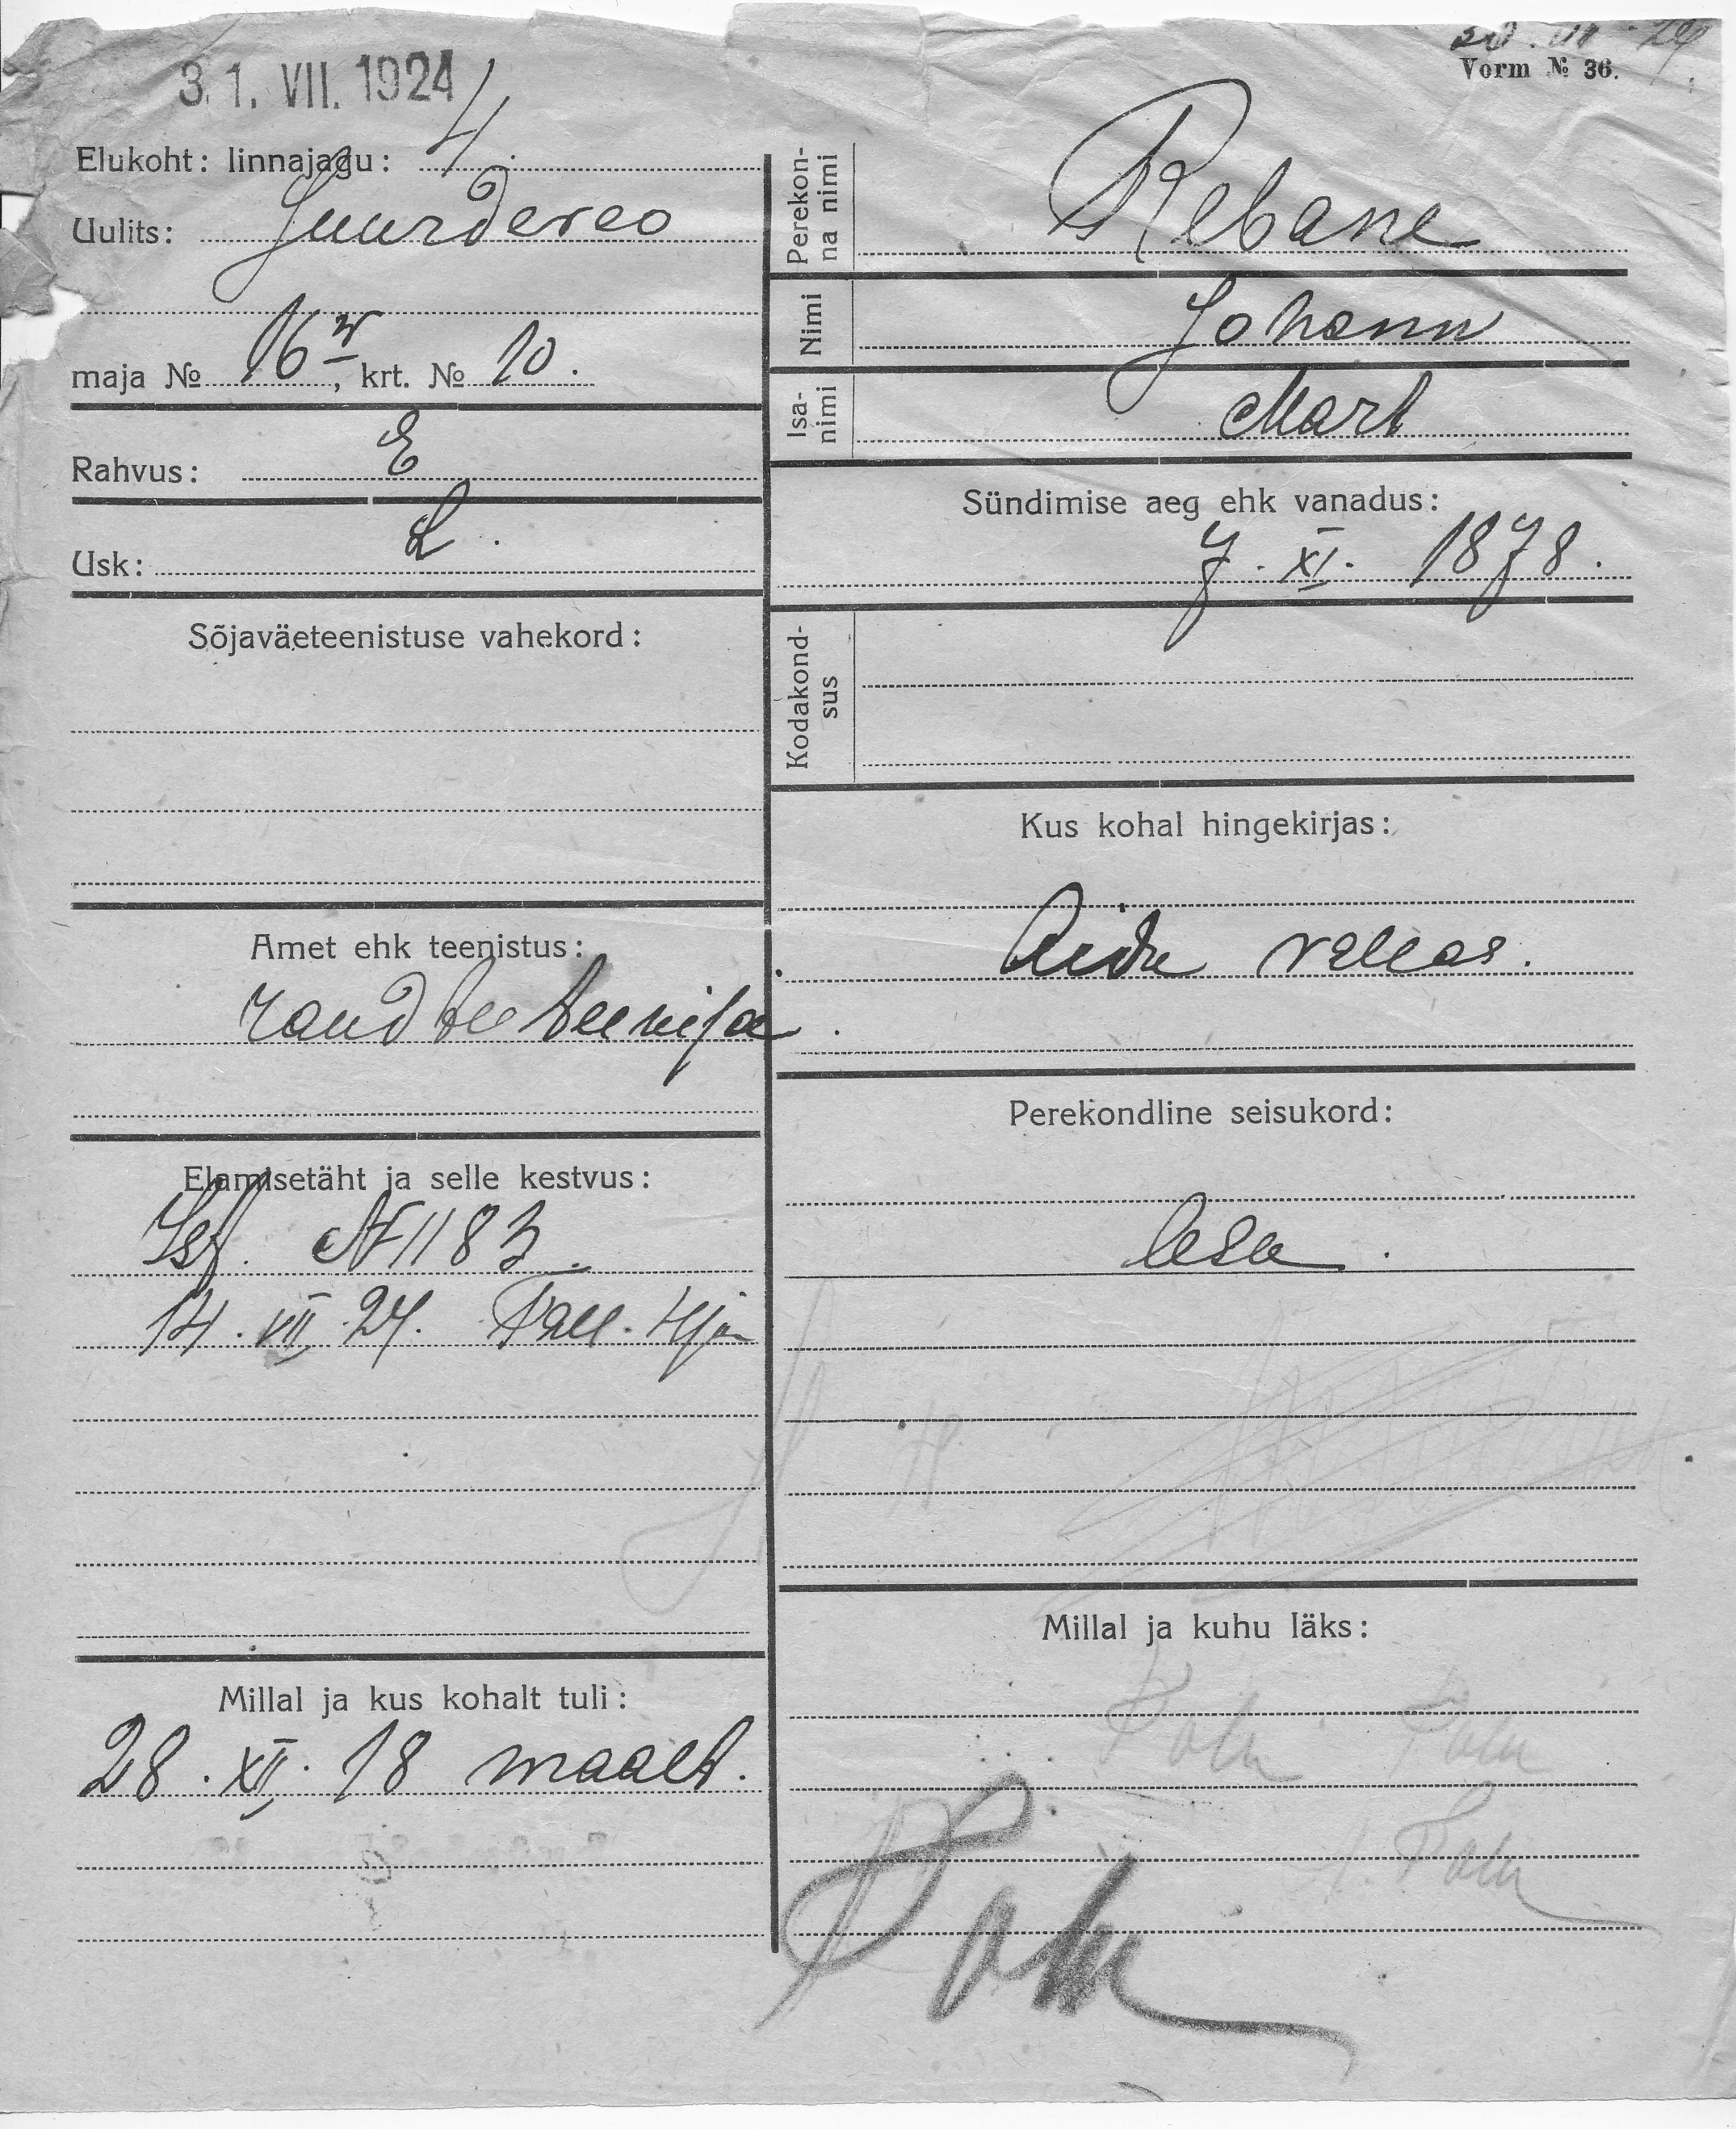 31. VII. 1924
Vorm № 36.
Elukoht: linnajagu: 4
Uulits: Juurdeveo
maja № 16, krt. № 10.
Rahvus: E
Usk: L.
Sõjaväeteenistuse vahekord:
Amet ehk teenistus:
raudtee teenija.
Elamisetäht ja selle kestvus:
Isf. N 1183.
14. VII. 24. Tall. 4 jsk
Millal ja kus kohalt tuli:
28. XII. 18 maalt.
Perekonna nimi
Rebane
Nimi
Johann
Isanimi
Mart
Sündimise aeg ehk vanadus:
7. XI. 1878.
Kodakondsus
Kus kohal hingekirjas:
Aidu vallas.
Perekondline seisukord:
lesk.
Millal ja kuhu läks: